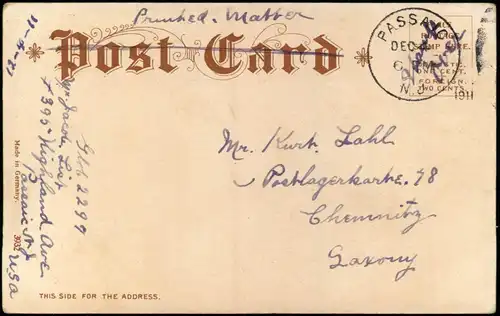 Printed-Matter
Post Card
PASSAIC
DEC
6 PM
N.J.
1911
PLACE
POSTAGE
STAMP HERE.
DOMESTIC
ONE CENT.
FOREIGN
TWO CENTS.
Mr. Kurt Lahl
Postlagerkarte. 78
Chemnitz
Saxony
Glob 2297
Jacob List
395 Highland Ave
Passaic N.J
USA
Made in Germany.
3932
THIS SIDE FOR THE ADDRESS.